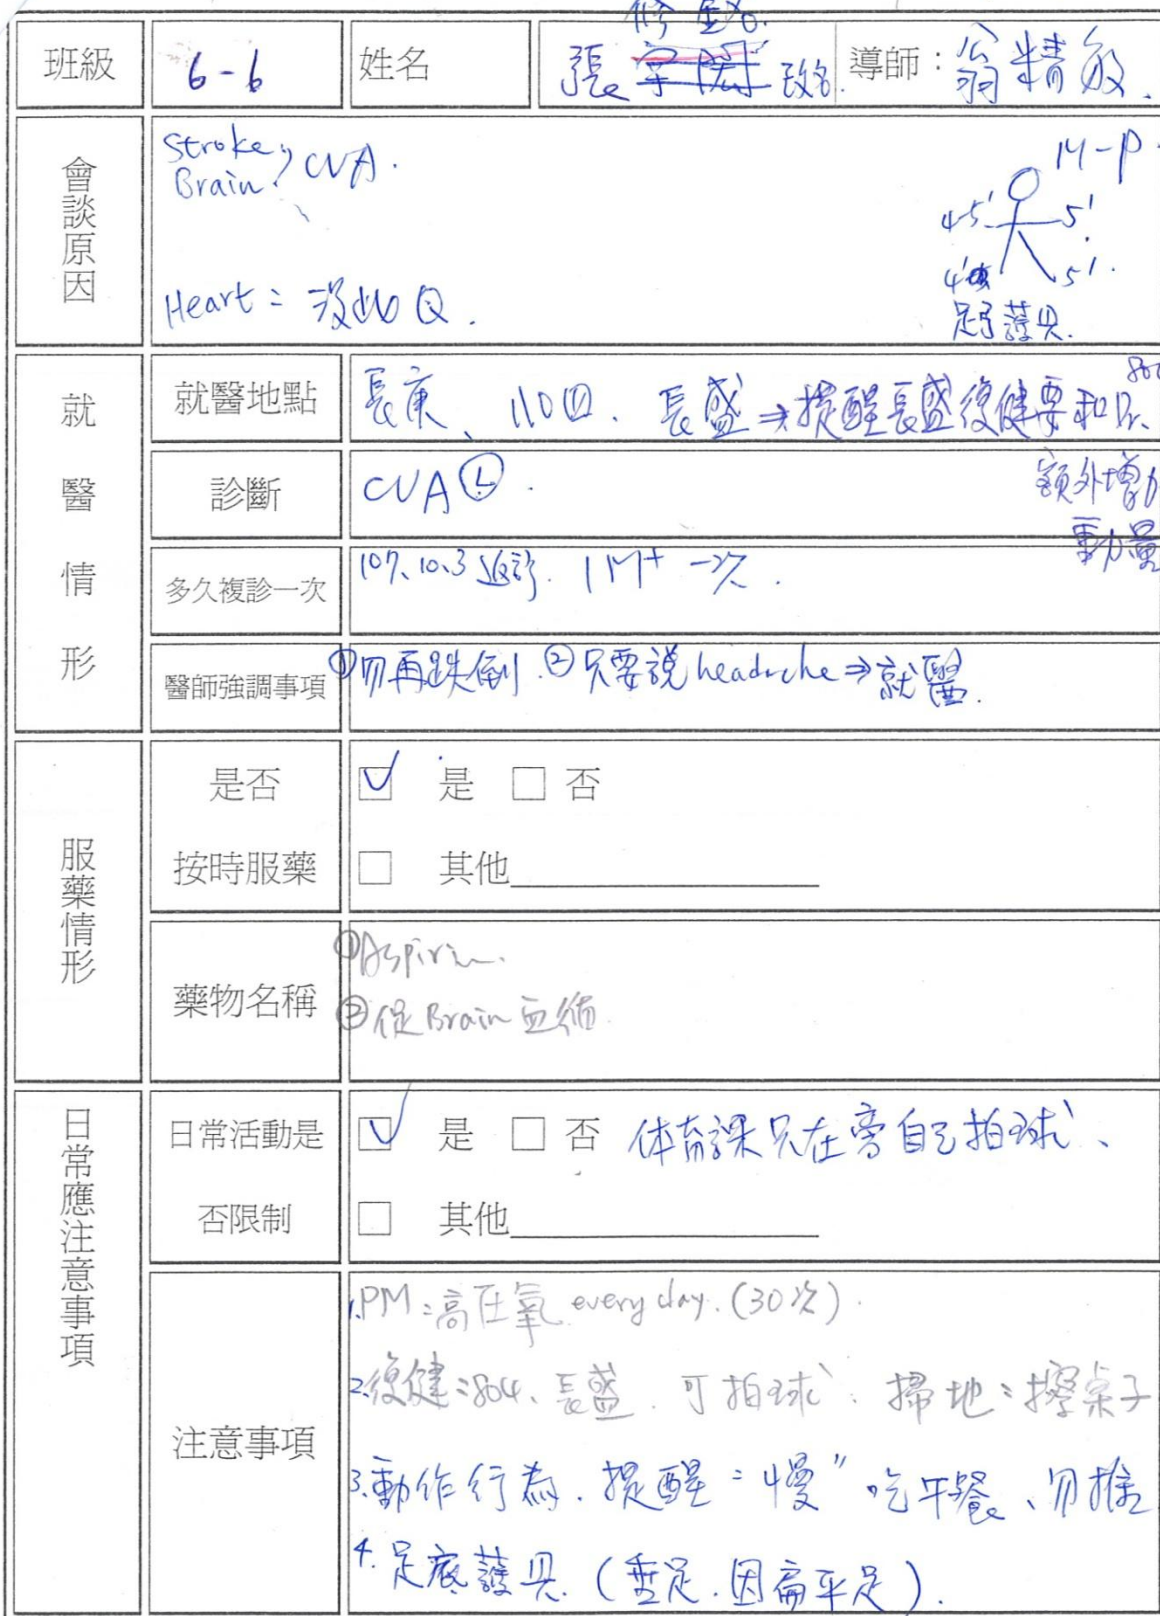 班級 6-6 姓名 張 改名. 導師：翁精敏.
會談原因
Stroke, CVA.
Brain.
Heart：沒此Q.
M-P.
4-5' 5'
4' 5'.
足弓護具.
就醫情形
就醫地點 長庚、 長盛→提醒長盛復健要和Dr.
診斷 CVA Ⓛ. 額外增加
動量
多久複診一次 107.10.3返診. 1M+ 一次.
醫師強調事項 ①勿再跌倒.②只要說headache⇒就醫.
服藥情形
是否 ☑ 是 □ 否
按時服藥 □ 其他
藥物名稱 ①Aspirin.
②促Brain血循.
日常應注意事項
日常活動是 ☑ 是 □ 否 体育課只在旁自己拍球、
否限制 □ 其他
注意事項
1.PM：高压氧 every day.(30次).
2.復健：804、長盛.可拍球、掃地：擦桌子
3.動作行為.提醒："慢"吃午餐、勿推
4.足底護具.(垂足.因扁平足).